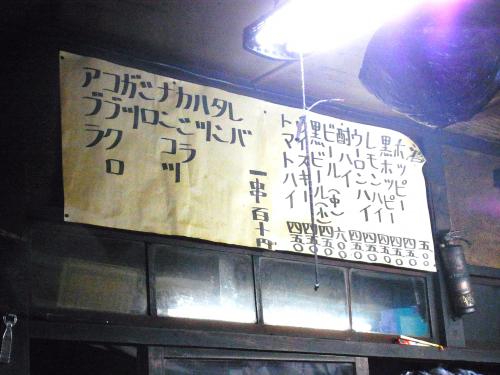 酒 五〇〇
ホッピー 四五〇
黒ホッピー 四五〇
レモンハイ 四五〇
ウーロンハイ 四五〇
酎ハイ 四五〇
ビール(中) 六〇〇
黒ビール(小) 四五〇
ウイスキー 四五〇
トマトハイ 四五〇
一串百十円
レバ
タン
ハツ
カシラ
ナンコツ
シロ
ガツ
コブクロ
アブラ